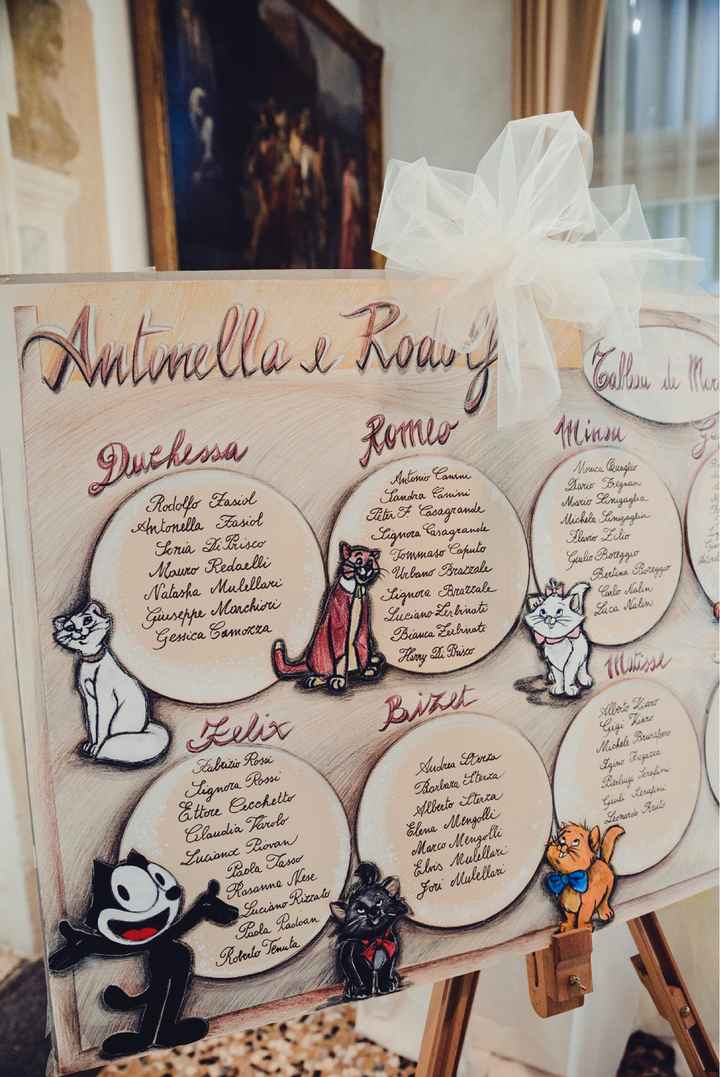 Antonella e Rodolf
Tableau de Mar
Duchessa
Rodolfo Fasiol
Antonella Fasiol
Sonia Di Prisco
Mauro Redaelli
Natasha Mulellari
Giuseppe Marchiori
Gessica Camozza
Romeo
Antonio Canini
Sandra Canini
Peter F. Casagrande
Signora Casagrande
Tommaso Caputo
Urbano Brazzale
Signora Brazzale
Luciano Zerbinato
Bianca Zerbinato
Harry Di Prisco
Minou
Monica Quaglio
Dario Fregnan
Mario Sinigaglia
Michela Sinigaglia
Flavio Zilio
Giulio Boreggio
Bertina Boreggio
Carlo Nalin
Luca Nalin
Felix
Fabrizio Rossi
Signora Rossi
Ettore Cecchetto
Claudia Varolo
Luciana Piovan
Paola Tasso
Rosanna Nese
Luciano Rizzato
Paola Padoan
Roberto Tenuta
Bizet
Andrea Sterza
Barbara Sterza
Alberto Sterza
Elena Mengolli
Marco Mengolli
Elvis Mulellari
Jori Mulellari
Matisse
Alberto Viaro
Gigi Viaro
Michele
Pierluigi Serafini
Giusi Serafini
Leonardo